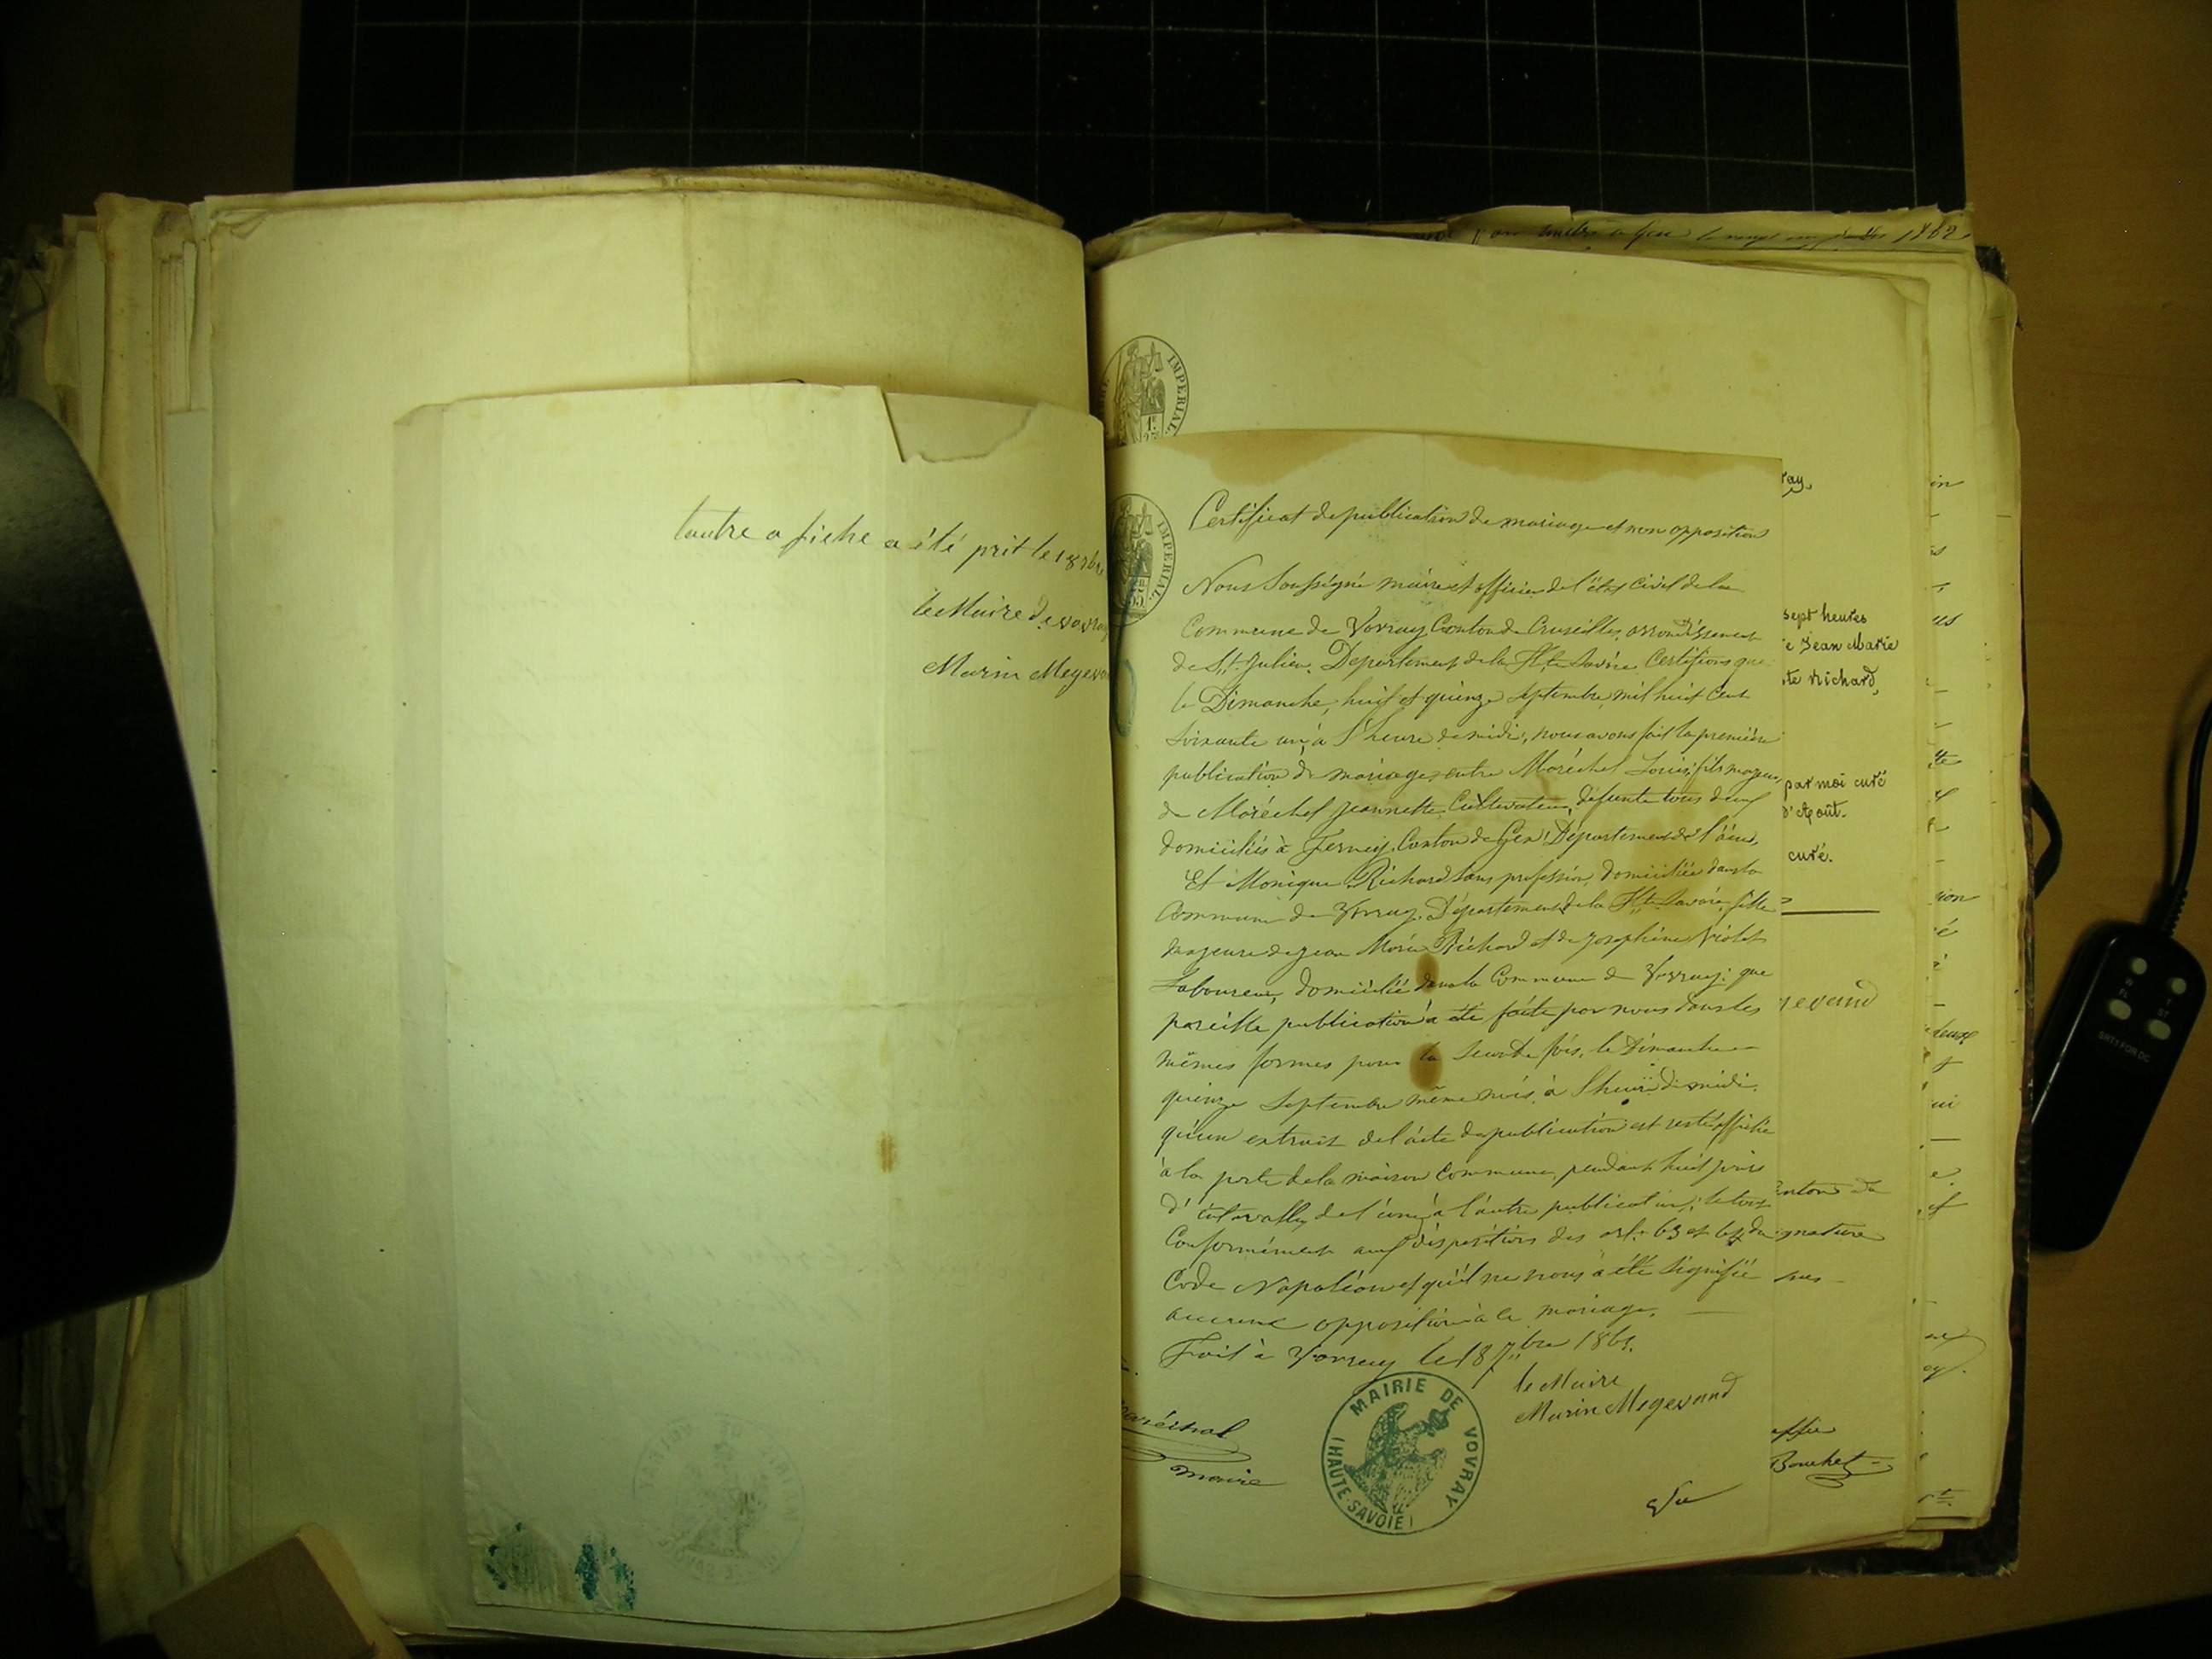 lautre afiche a été prit le 18 7bre
le Maire de vovray
Marin Megeva
IMPERIAL
IMPERIAL
Certificat de publication de mariage et non opposition
Nous Soussigné maire et officier de l'état civil de la
Commune de Vovray, Canton de Cruseilles, arrondissement
de St. Julien, Département de la Hte Savoie Certifions que
le Dimanche, huit et quinze septembre, mil huit cent
soixante un, à l'heure de midi, nous avons fait la première
publication de mariage, entre Maréchel Louis, fils majeur
de Maréchel Jeannette, Cultivateur, défunte tous deux
domiciliés à Ferney, Canton de Gex, Département de l'áin,
Et Monique Richard sans profession, domiciliée dans la
Commune de Vovray, Département de la Hte Savoie, fille
majeure de Jean Marie Richard et de Josephine Violet
Laboureur, domicilié dans la Commune de Vovray; que
pareille publication à été faite par nous dans les
mêmes formes pour la seconde fois, le Dimanche
quinze Septembre même mois, à l'heure de midi.
qu'un extrait de l'acte de publication est resté affiché
à la porte de la maison Commune, pendant huit jours
d'intervalle, de l'une à l'autre publication; le tout
Conformément aux dispositions des art. 63 et 64 du
Code Napoléon et qu'il ne nous à été signifié
aucune opposition à ce mariage.
Fait à Vovray le 18 7bre 1861.
le Maire
Marin Megevand
MAIRIE DE VOVRAY
(HAUTE-SAVOIE)
maréchal
maire
1862
ray.
sept heures
e Jean Marie
te Richard,
par moi curé
d'Août.
curé.
gevand
anton de
gnature
Bouchet
in
us
te
ion
deux
ui